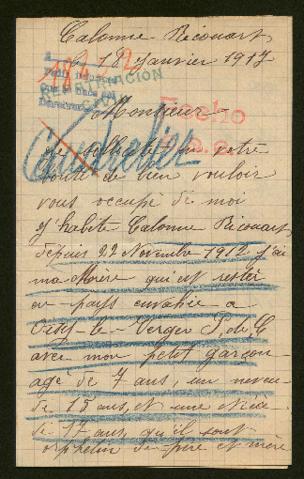 Calonne Ricouart
le 18 Janvier 1917
REPATRIATION
CIVIL
Fecho
Monsieur
Je sollicite de votre
bonté de bien vouloir
vous occupé de moi
J'habite Calonne Ricouart
depuis 22 Novembre 1912 J'ai
ma Mère qui est resté
en pays envahie a
Oisy-le-Verger P. de C
avec mon petit garçon
agé de 7 ans, un neveu
de 15 ans, et une Nièce
de 17 ans, qu'il sont
orphelin de père et mère